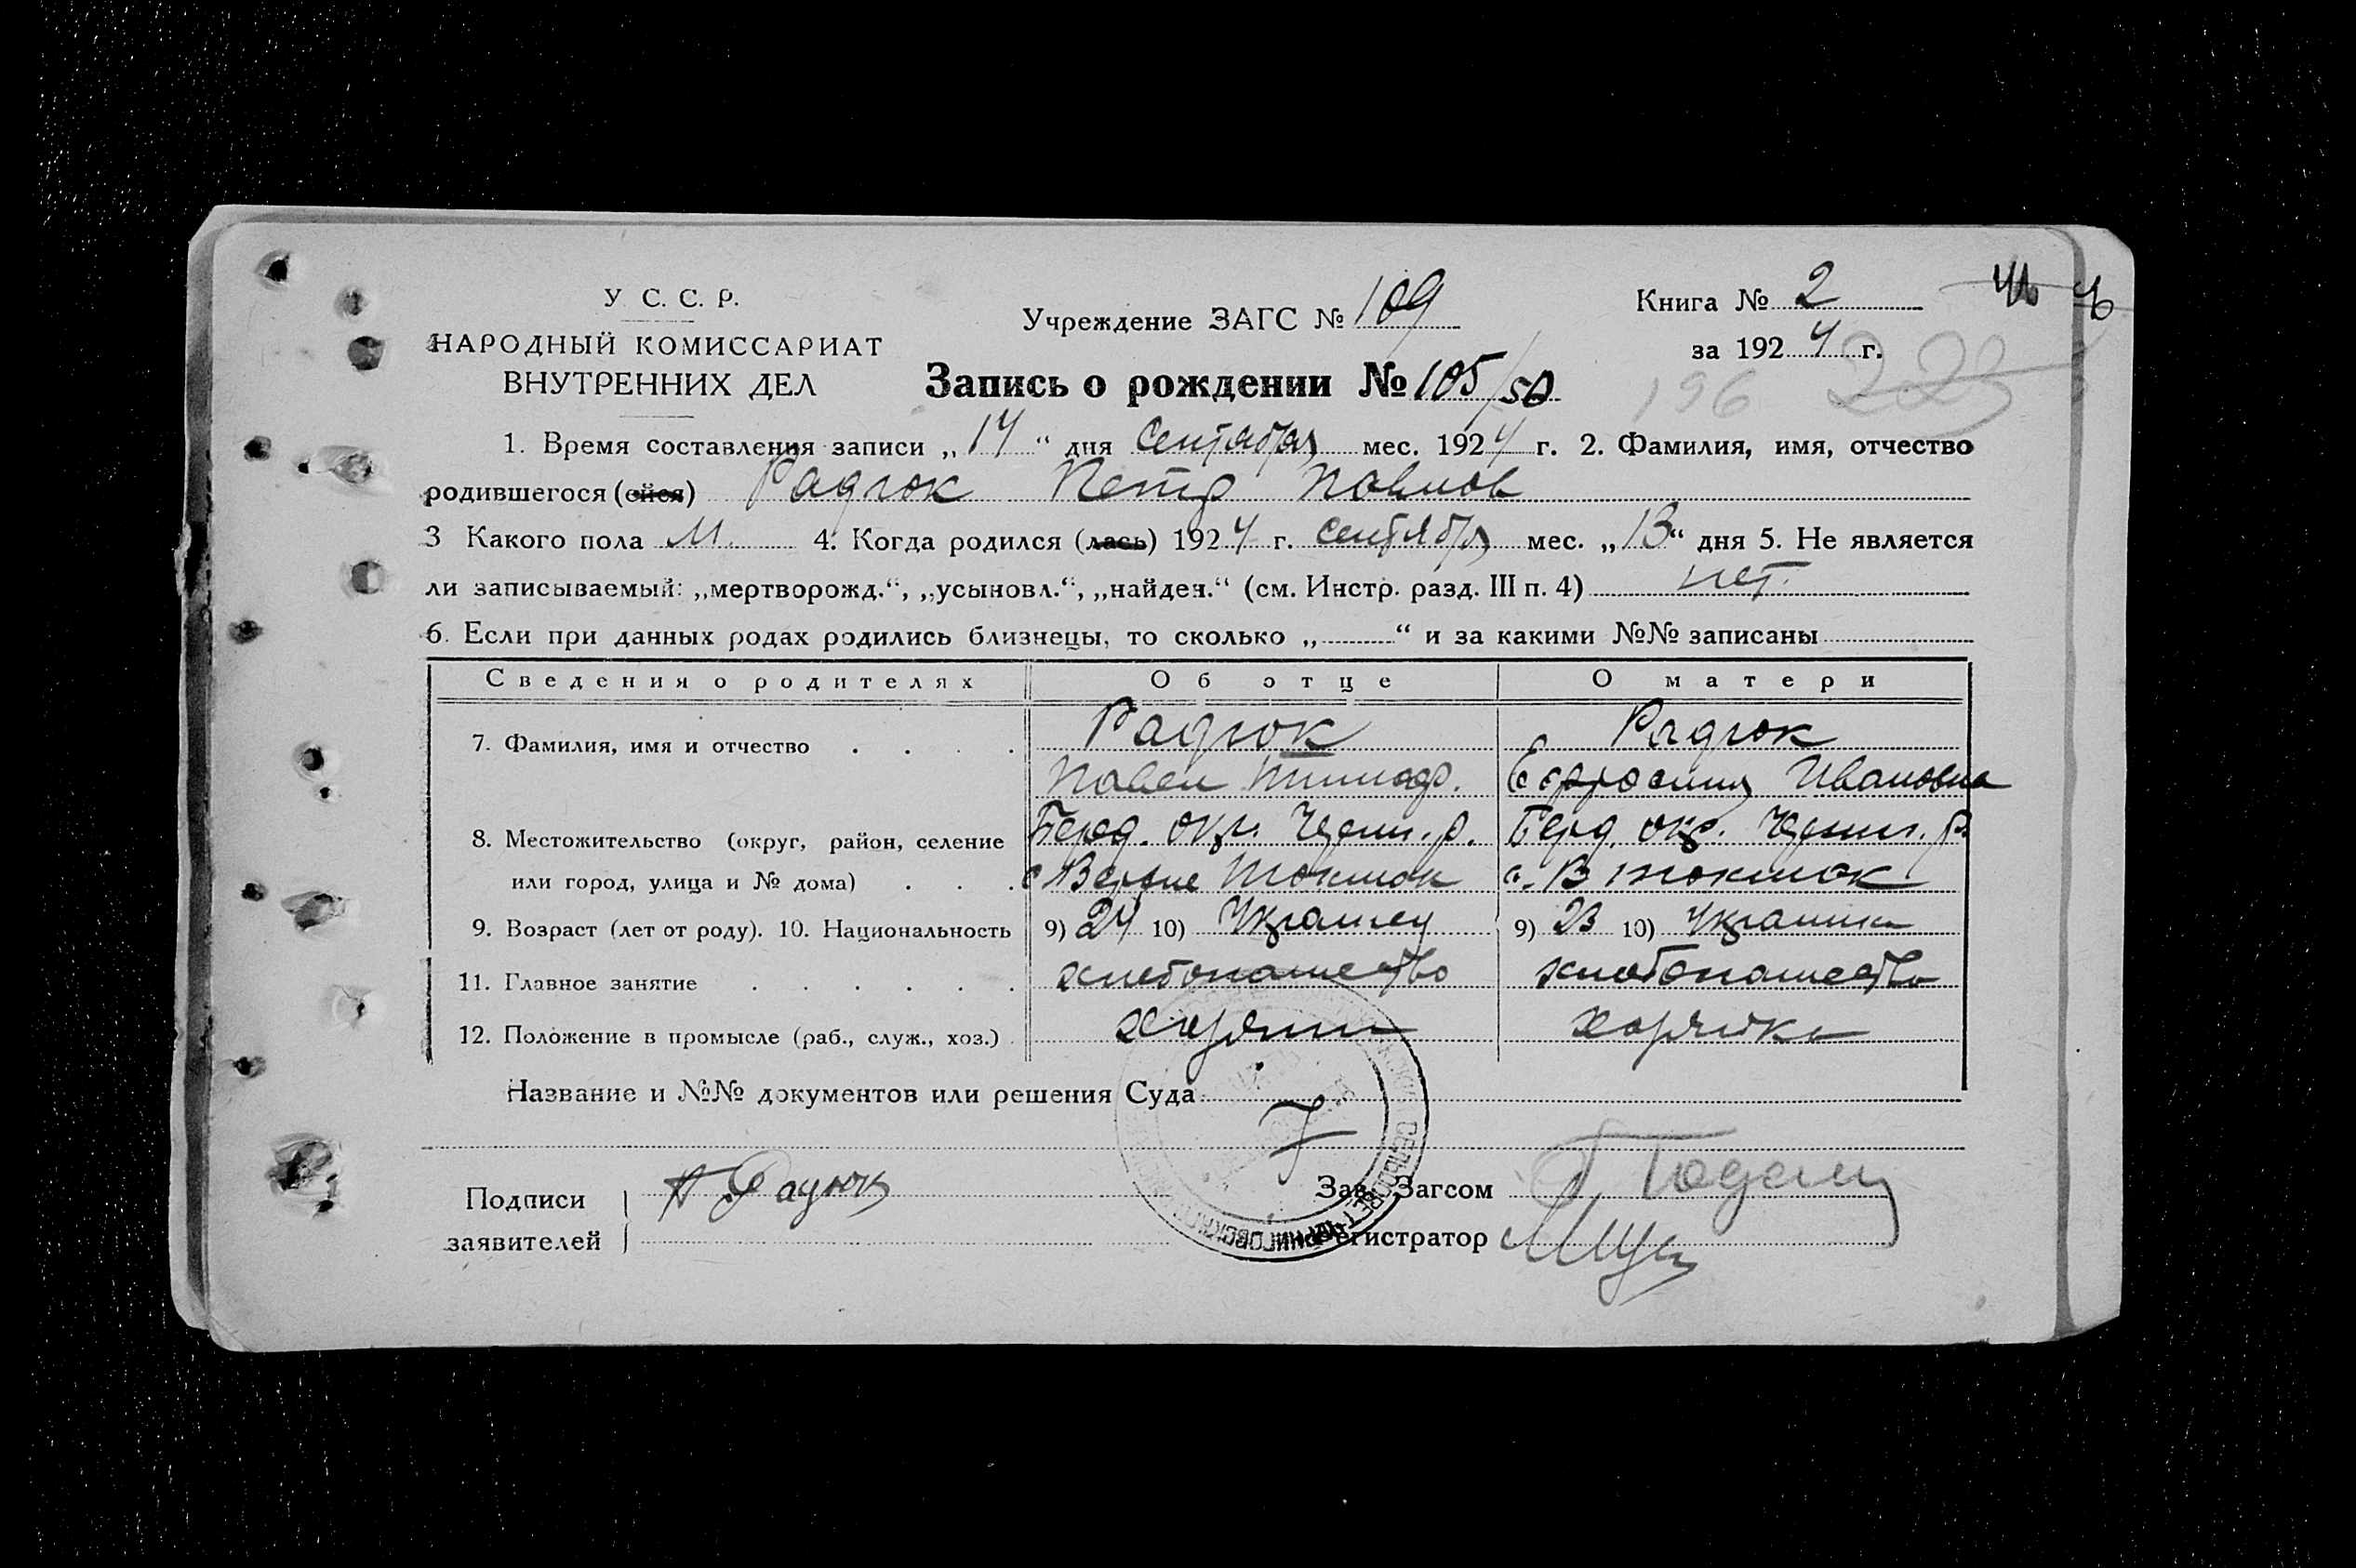 У. С. С. Р.
НАРОДНЫЙ КОМИССАРИАТ
ВНУТРЕННИХ ДЕЛ
Учреждение ЗАГС № 109
Книга № 2
за 1924 г.
Запись о рождении № 105/50
196 225
1. Время составления записи „14“ дня Сентября мес. 1924 г. 2. Фамилия, имя, отчество
родившегося (ейся) Радюк Петр Павлов
3 Какого пола М. 4. Когда родился (лась) 1924 г. Сентября мес. „13“ дня 5. Не является
ли записываемый: „мертворожд.“, „усыновл.“, „найден.“ (см. Инстр. разд. III п. 4) нет.
6. Если при данных родах родились близнецы, то сколько „ “ и за какими №№ записаны
Сведения о родителях Об отце О матери
7. Фамилия, имя и отчество Радюк Радюк
Павел Тимоф. Ефросиния Ивановна
8. Местожительство (округ, район, селение Берд. окр. Черниг. р. Берд. окр. Черниг. р.
или город, улица и № дома) с Верхне Токмак с. В Токмак
9. Возраст (лет от роду). 10. Национальность 9) 24 10) Украинец 9) 23 10) Украинка
11. Главное занятие хлебопашество хлебопашество
12. Положение в промысле (раб., служ., хоз.) хозяин хозяйка
Название и №№ документов или решения Суда
Подписи П. Радюк Зав. Загсом
заявителей Регистратор